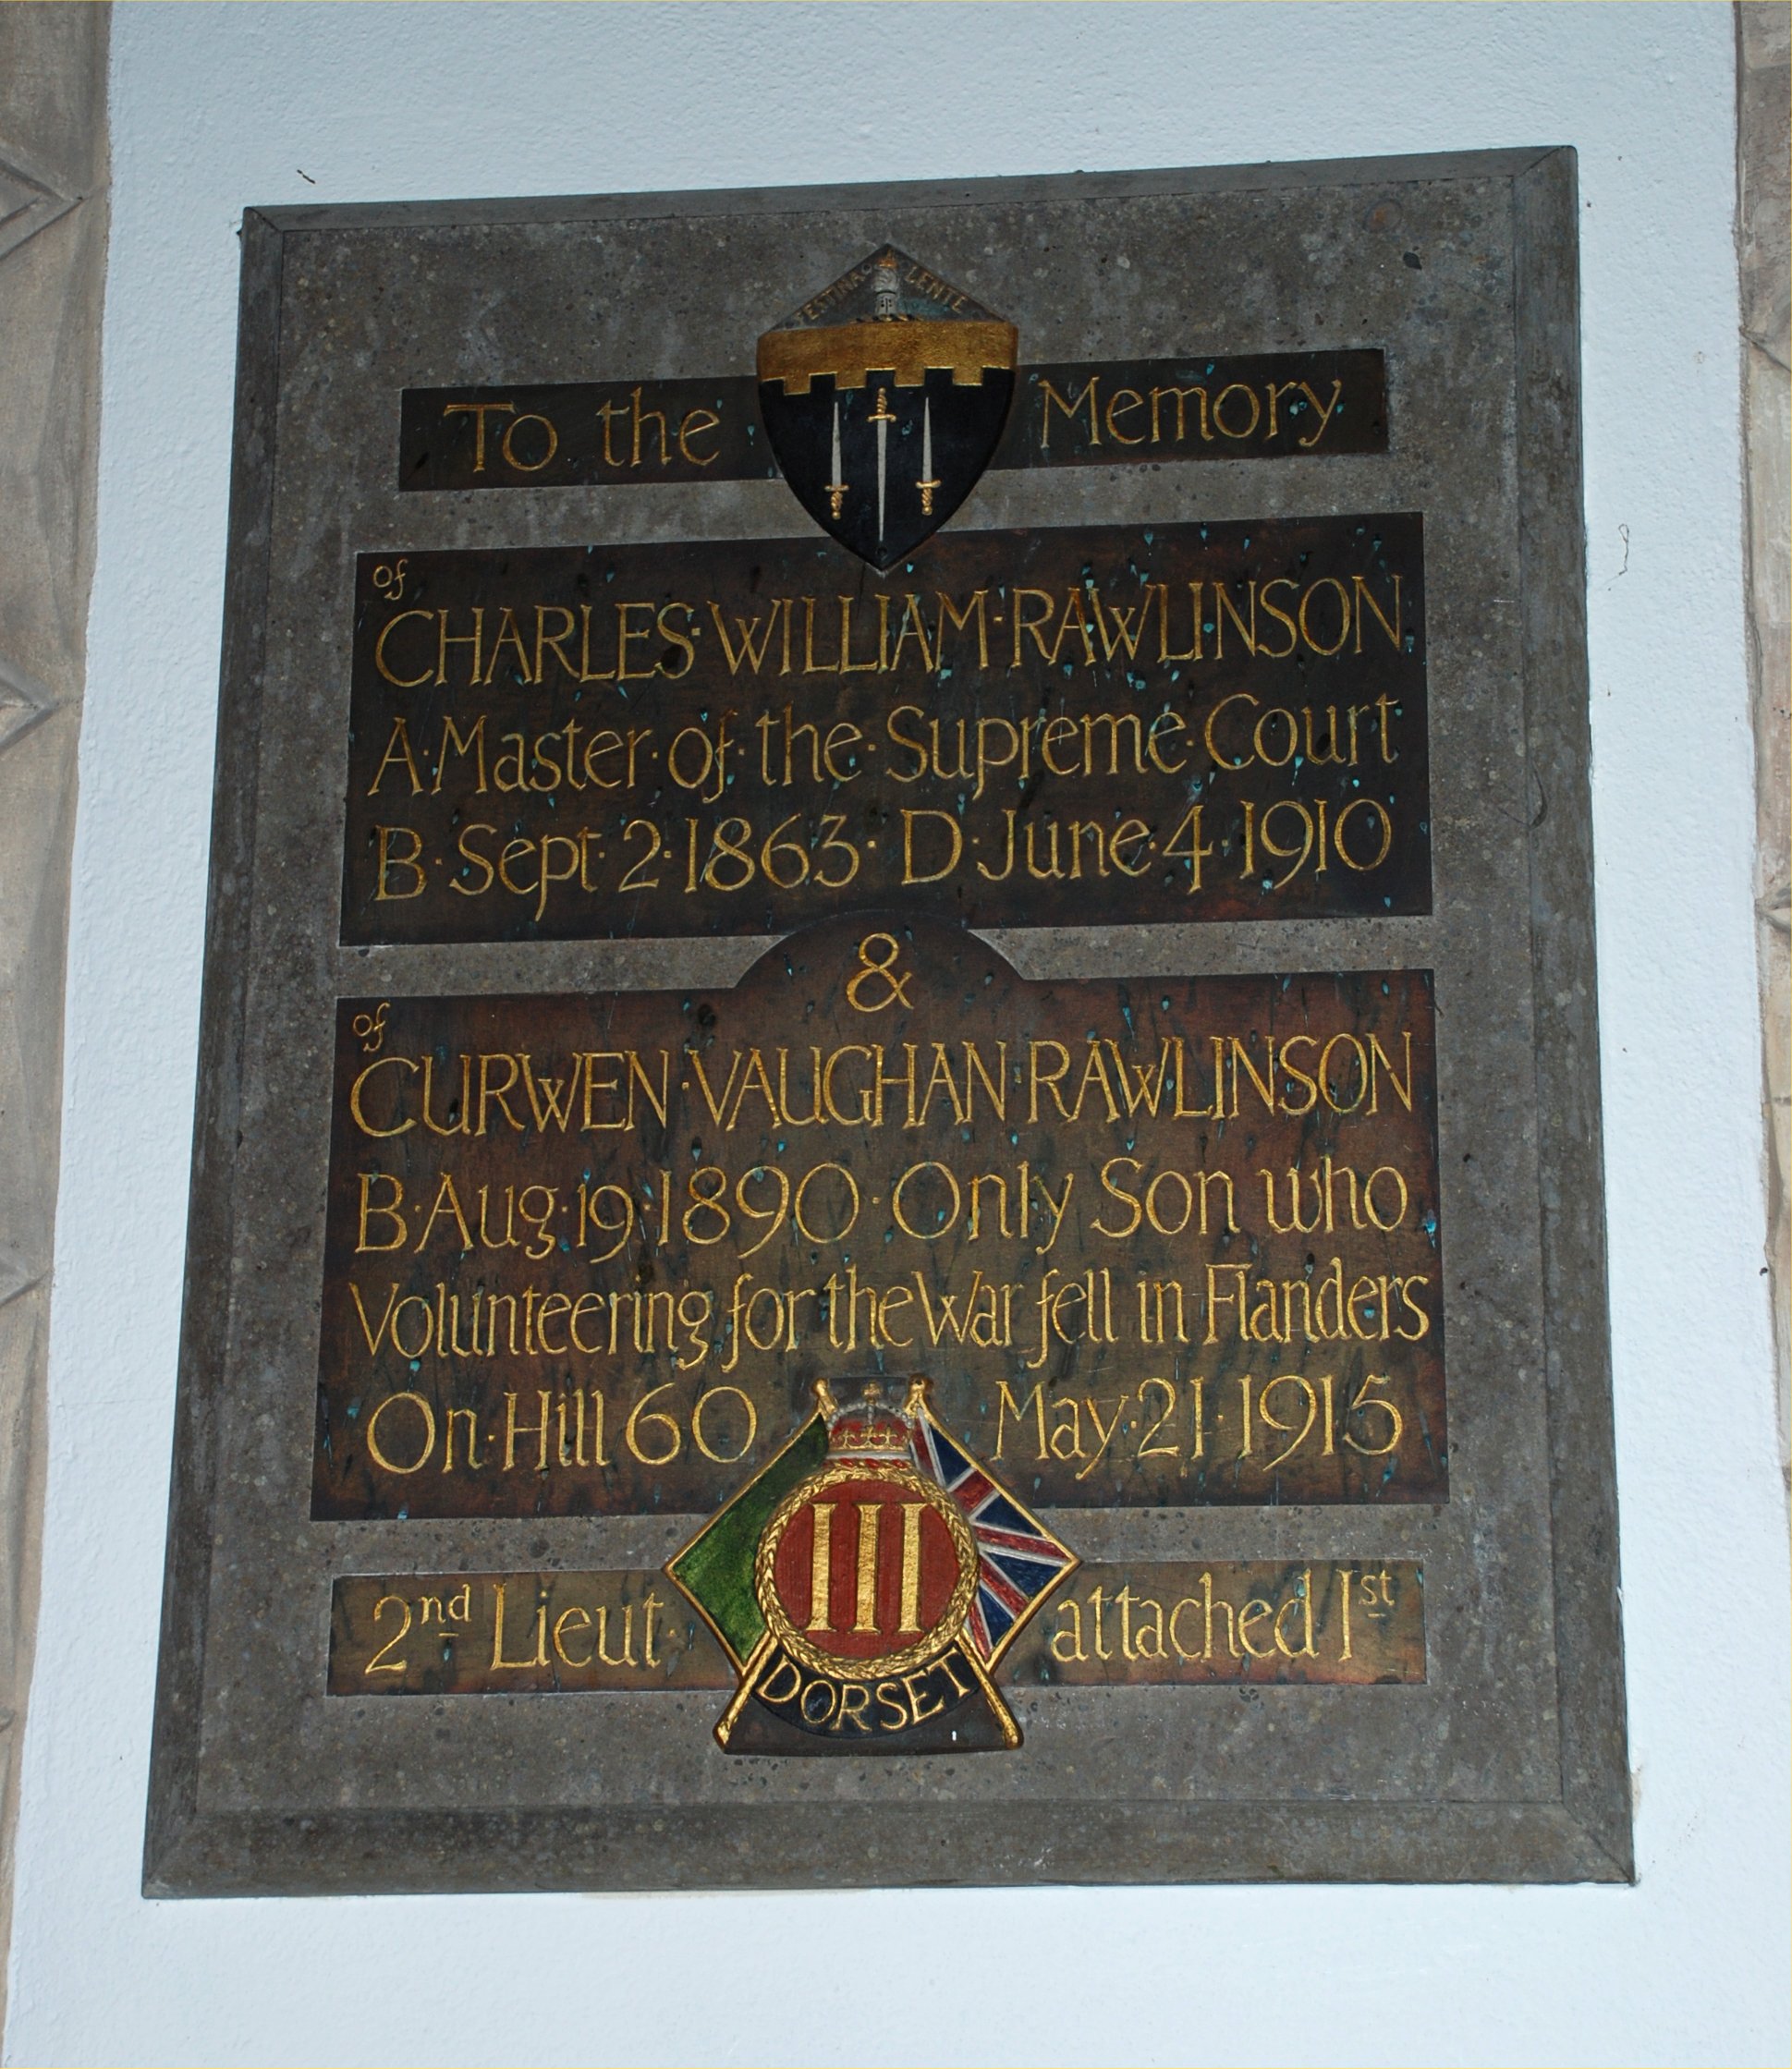 FESTINA LENTE
To the Memory
of
CHARLES·WILLIAM·RAWLINSON
A·Master·of·the·Supreme·Court
B·Sept·2·1863·D·June·4·1910
&
of
CURWEN·VAUGHAN RAWLINSON
B·Aug·19·1890·Only Son who
Volunteering for the War fell in Flanders
On·Hill 60 May·21·1915
III
2nd Lieut· attached 1st
DORSET